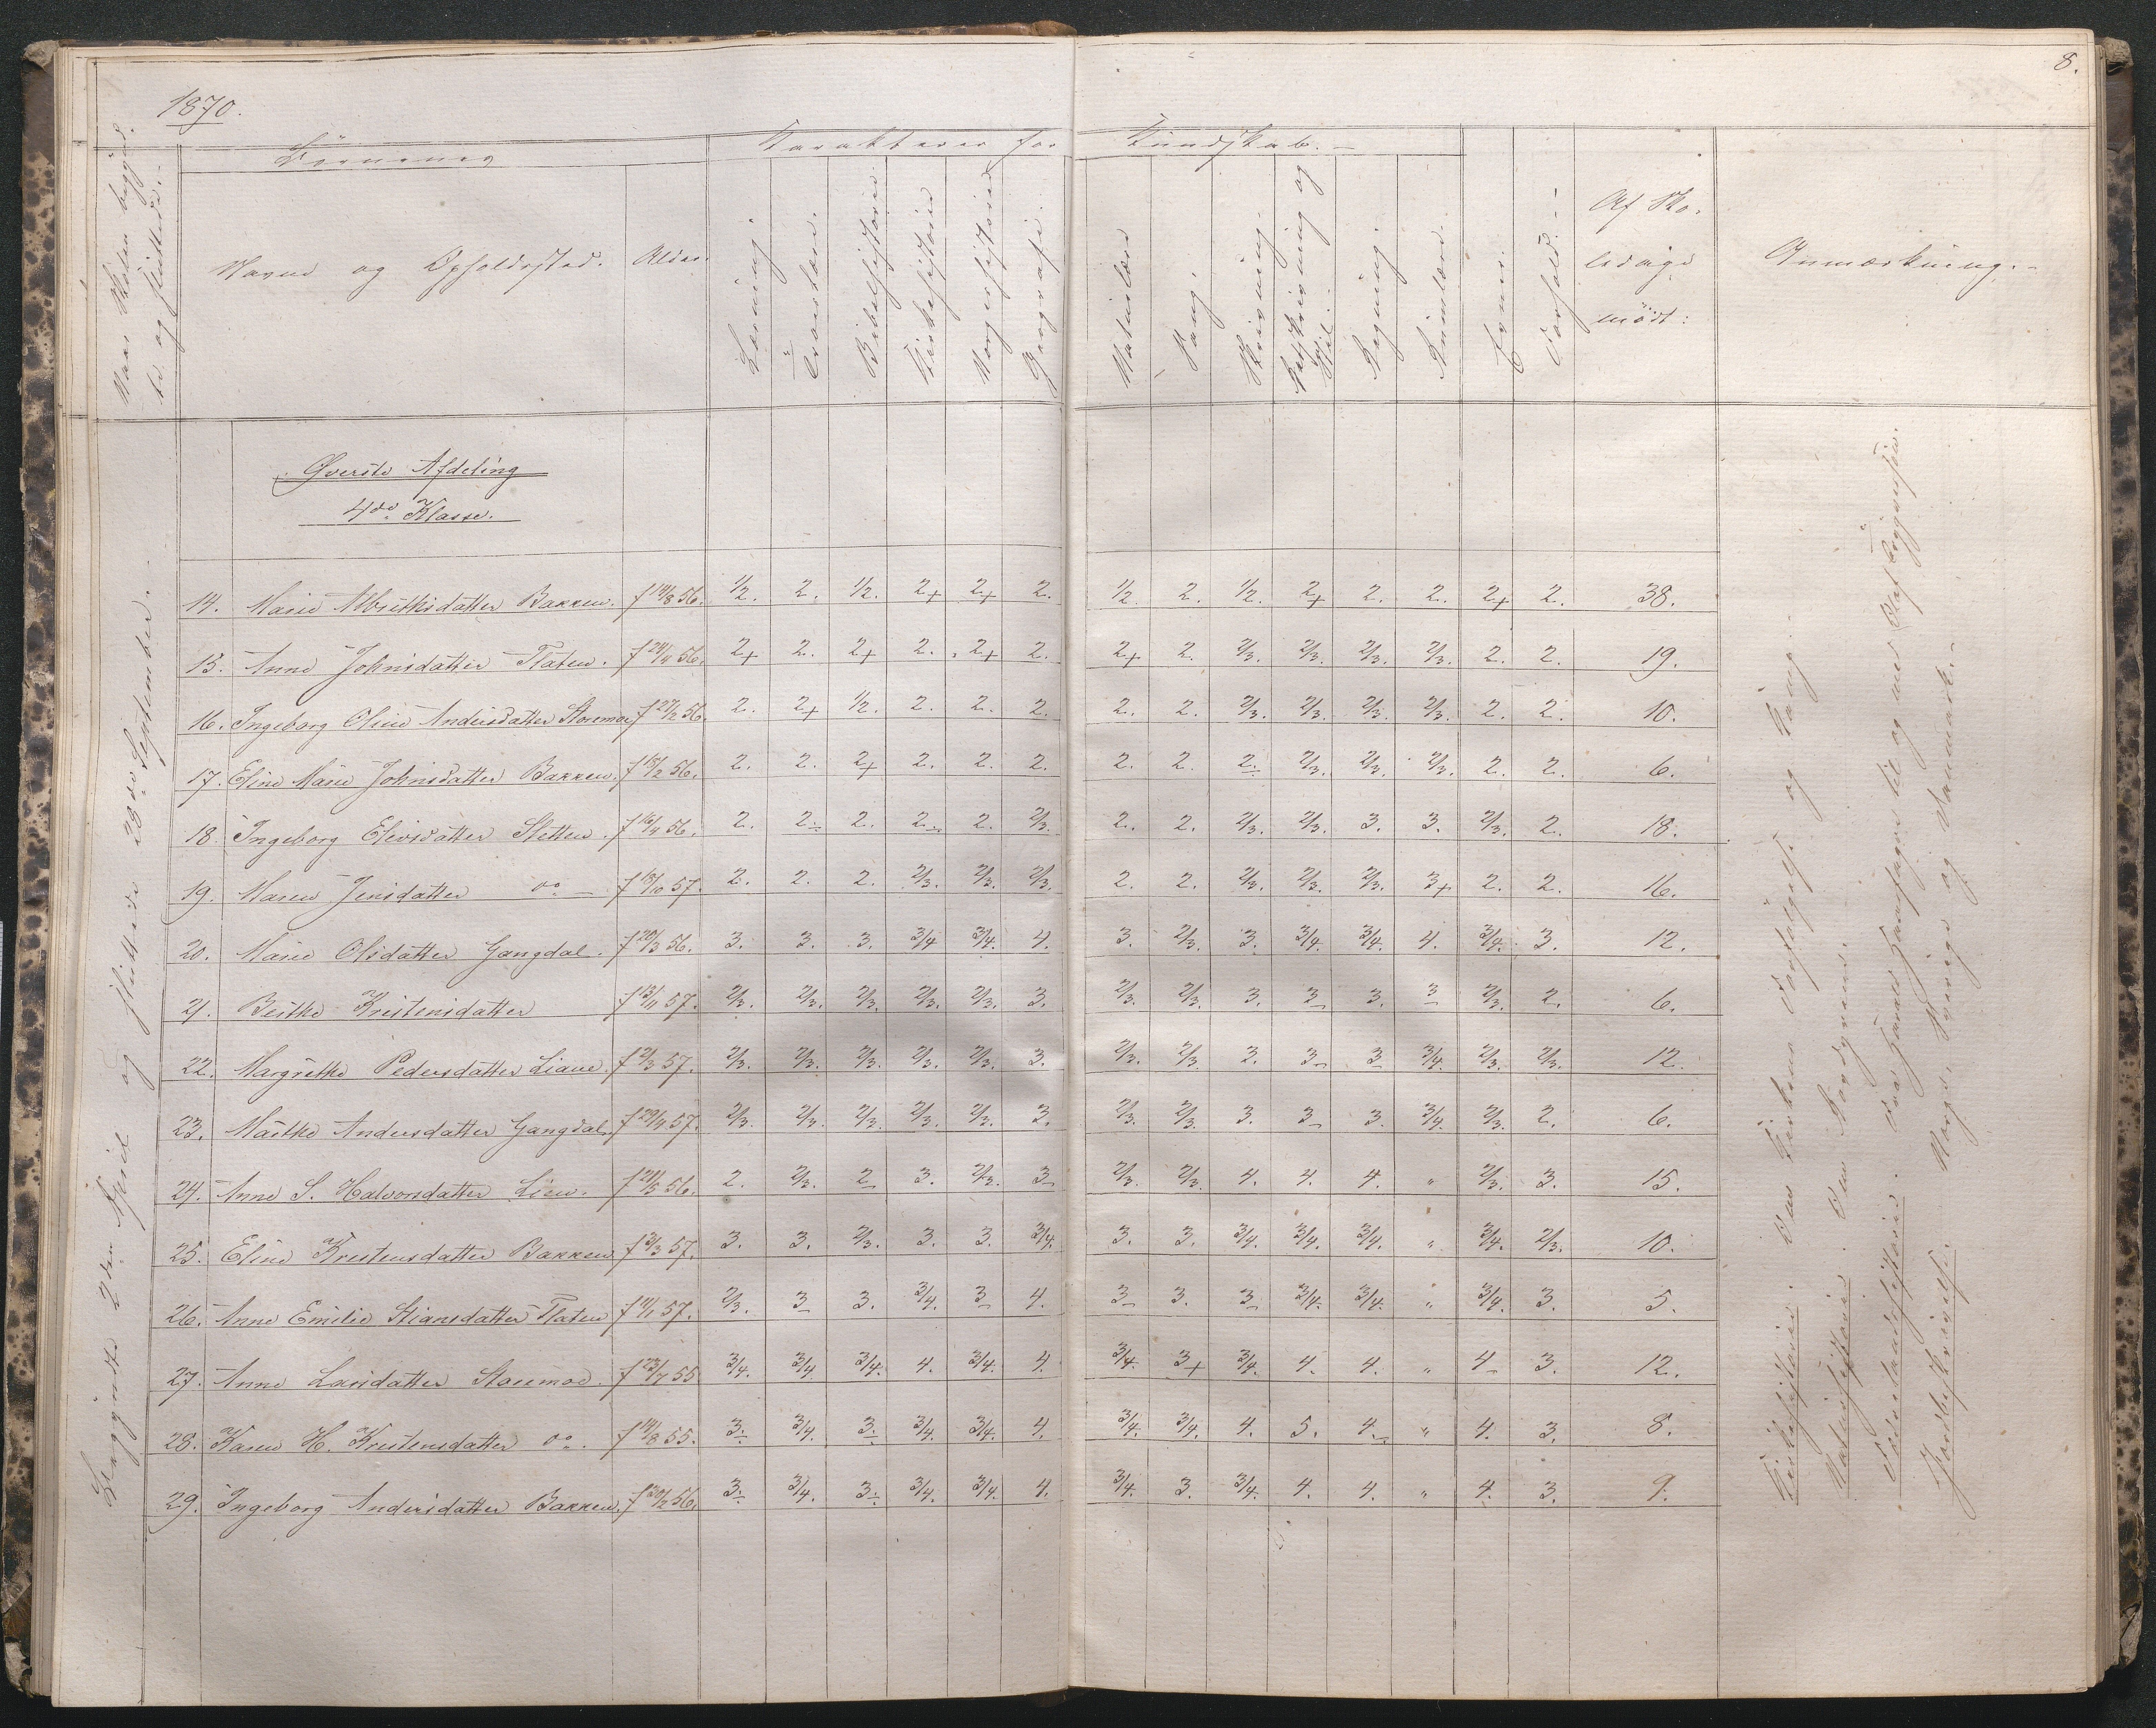 8.
1870.
Naar Skolen begynd-
te og sluttede.-
Børnenes
Karakterer for Kundskab.-
Navne og Opholdssted.
Alder.
Læsning.
Troeslære.
Bibelhistorie
Kirkehistorie
Norgeshistorie
Geografi.
Naturlære
Sang
Skrivning.
Retskrivning og
Stil.
Regning.
Evner.
Forhold.-
Af Sko-
ledage
mødt:
Anmærkning.-
Øverste Afdeling
4de Klasse.
Begyndte 2den April og sluttede 28de September.-
14. Marie Albrethsdatter Bakken. f 14/8 56. 1/2. 2. 1/2. 2+ 2+ 2. 1/2. 2. 1/2. 2+ 2. 2. 2+ 2. 38.
15. Anne Johnsdatter Flaten. f 24/4 56. 2+ 2. 2+ 2. 2+ 2. 2+ 2. 2/3. 2/3. 2/3. 2/3. 2. 2. 19.
16. Ingeborg Oline Andersdatter Storemoe f 27/2 56. 2. 2+ 1/2. 2. 2. 2. 2. 2. 2/3. 2/3. 2/3. 2/3. 2. 2. 10.
17. Eline Marie Johnsdatter Bakken. f 15/2 56. 2. 2. 2+ 2. 2. 2. 2. 2. 2. 2/3. 2/3. 2/3. 2. 2. 6.
18. Ingeborg Elevsdatter Sletten. f 16/4 56. 2. 2. 2. 2. 2. 2/3. 2. 2. 2/3. 2/3. 3. 3. 2/3. 2. 18.
19. Maren Jensdatter do - f 18/10 57. 2. 2. 2. 2/3. 2/3. 2/3. 2. 2. 2/3. 2/3. 2/3. 3+ 2. 2. 16.
20. Marie Olsdatter Gangdal. f 20/3 56. 3. 3. 3. 3/4 3/4. 4. 3. 2/3. 3. 3/4. 3/4. 4. 3/4. 3. 12.
21. Berthe Kristensdatter f 13/11 57. 2/3. 2/3. 2/3. 2/3. 2/3. 3. 2/3. 2/3. 3. 3 3. 3 2/3. 2. 6.
22. Margrethe Pedersdatter Liane. f 2/3 57. 2/3. 2/3. 2/3. 2/3. 2/3. 3. 2/3. 2/3 3. 3 3 3/4. 2/3. 2/3. 12.
23. Marthe Andersdatter Gangdal f 29/4 57. 2/3. 2/3. 2/3. 2/3. 2/3. 3. 2/3. 2/3. 3. 3 3. 3/4. 2/3. 2. 6.
24. Anne S. Halvorsdatter Lien. f 21/5 56. 2. 2/3. 2 3. 2/3. 3 2/3. 2/3. 4. 4. 4. " 2/3. 3. 15.
25. Eline Kristensdatter Bakken f 3/3 57. 3. 3. 2/3. 3. 3. 3/4. 3. 3. 3/4. 3/4. 3/4. " 3/4. 2/3. 10.
26. Anne Emilie Stiansdatter Flaten f 4/1 57. 2/3. 3 3. 3/4. 3 4. 3 3. 3 3/4. 3/4. " 3/4. 3. 5.
27. Anne Larsdatter Storemoe. f 23/7 55 3/4. 3/4 3/4. 4. 3/4. 4. 3/4. 3+ 3/4. 4. 4. " 4 3. 12.
28. Karen H. Kristensdatter do. f 14/8 55. 3. 3/4. 3. 3/4. 3/4. 4. 3/4. 3/4. 4. 5. 4. " 4. 3. 8.
29. Ingeborg Andersdatter Bakken. f 20/2 56. 3. 3/4. 3. 3/4. 3/4. 4. 3/4. 3. 3/4. 4. 4. " 4. 3. 9.
Kirkehistorie: Den Kirkens Forfølgelse og Sang.-
Naturhistorie. Om
Fædrelandshistorie. Fra Harald Haarfagres til og med Olaf
Jordbeskrivelse. Norge, Sverige og Danmark.-